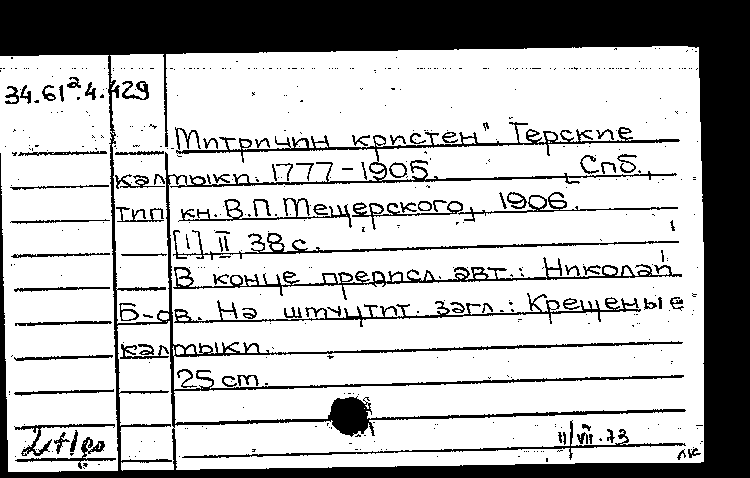 34.61².4.429
Митричин кристен". Терские
калмыки. 1777-1905. [Спб.,
тип. кн. В.П. Мещерского], 1906.
[1], II, 38 с.
В конце предисл. авт.: Николай
Б-ов. На шмуцтит. загл.: Крещеные
калмыки.
25 cm.
11/VII.73